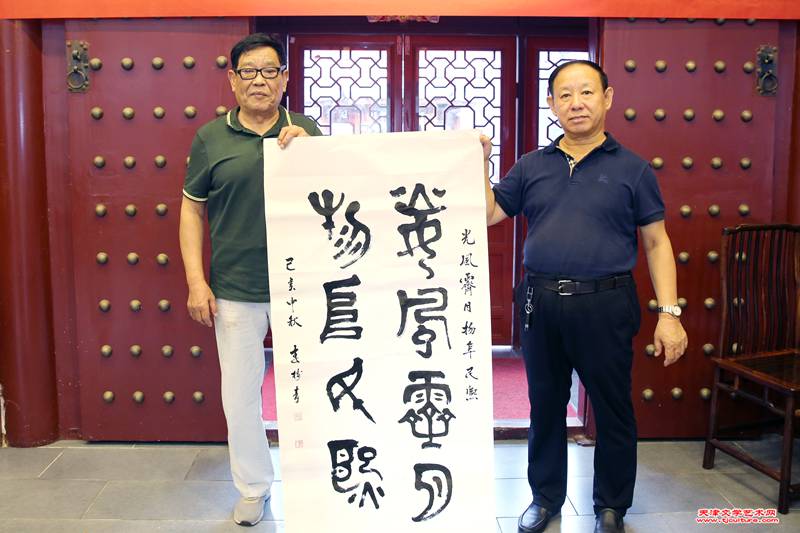 光風霽月物阜民熙
光風霽月
物阜民熙
己亥中秋
天津文学艺术网
www.tjculture.com